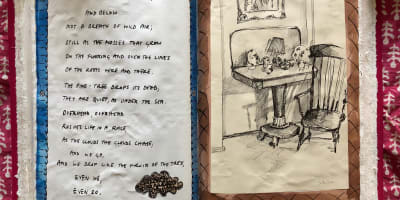 AND BELOW
NOT A BREATH OF WILD AIR;
STILL AS THE MOSSES THAT GROW
ON THE FLOORING AND OVER THE LINES
OF THE ROOTS HERE AND THERE.
THE PINE-TREE DROPS ITS DEAD;
THEY ARE QUIET, AS UNDER THE SEA.
OVERHEAD, OVERHEAD
RUSHES LIFE IN A RACE
AS THE CLOUDS THE CLOUDS CHASE;
AND WE GO,
AND WE DROP LIKE THE FRUITS OF THE TREE,
EVEN WE,
EVEN SO.